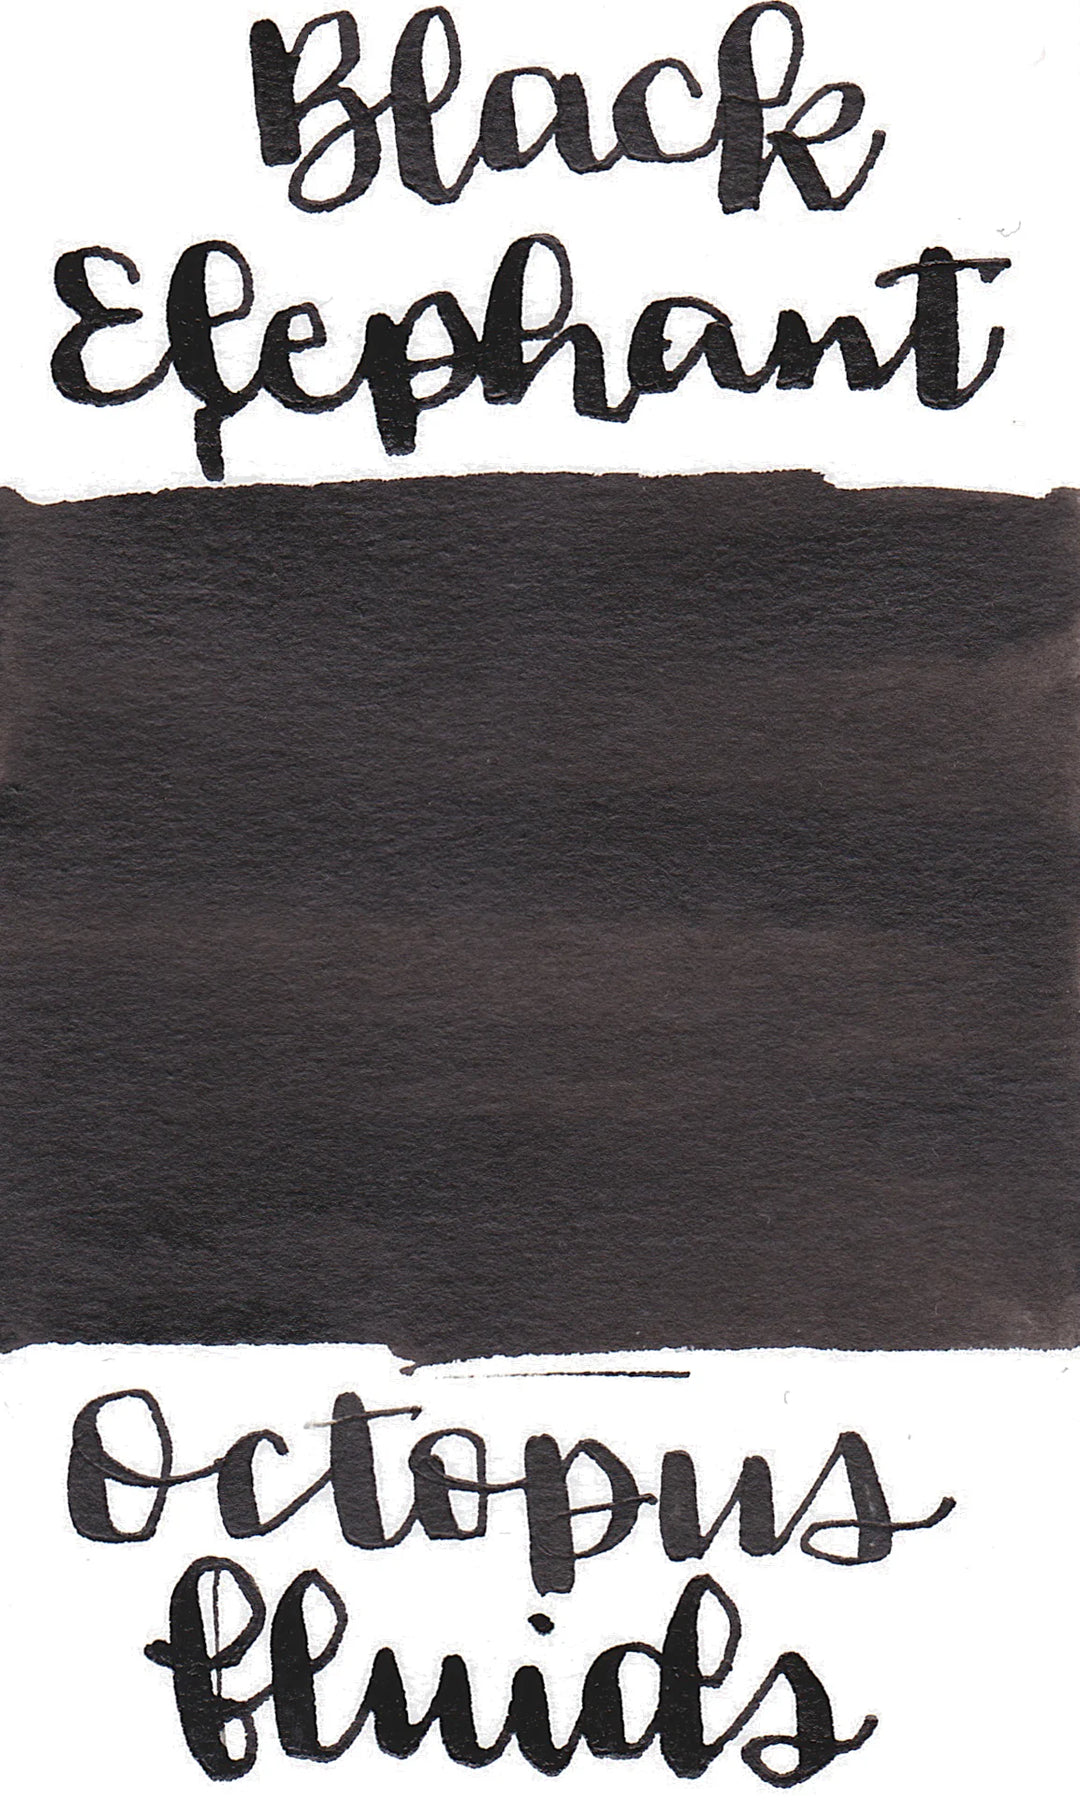 Black
Elephant
Octopus
fluids